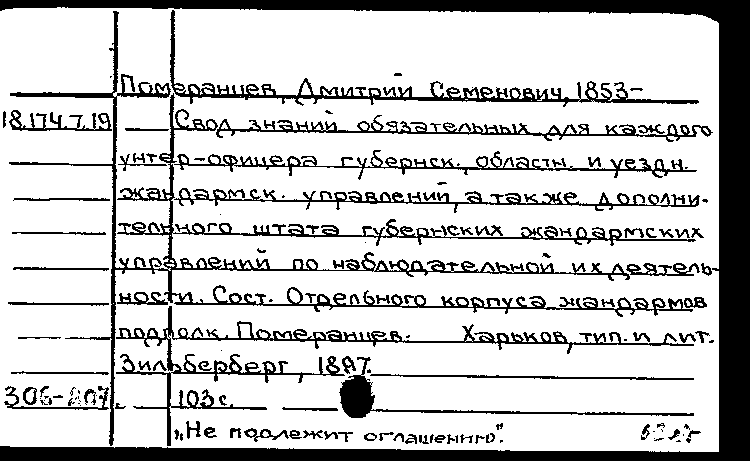 Померанцев, Дмитрий Семенович, 1853-
18.174.7.19 Свод знаний обязательных для каждого
унтер-офицера губернск., областн. и уездн.
жандармск. управлений, а также дополни-
тельного штата губернских жандармских
управлений по наблюдательной их деятель-
ности. Сост. Отдельного корпуса жандармов
подполк. Померанцев. Харьков, тип. и лит.
Зильберберг, 1897.
306-807. 103 с.
„Не подлежит оглашению".